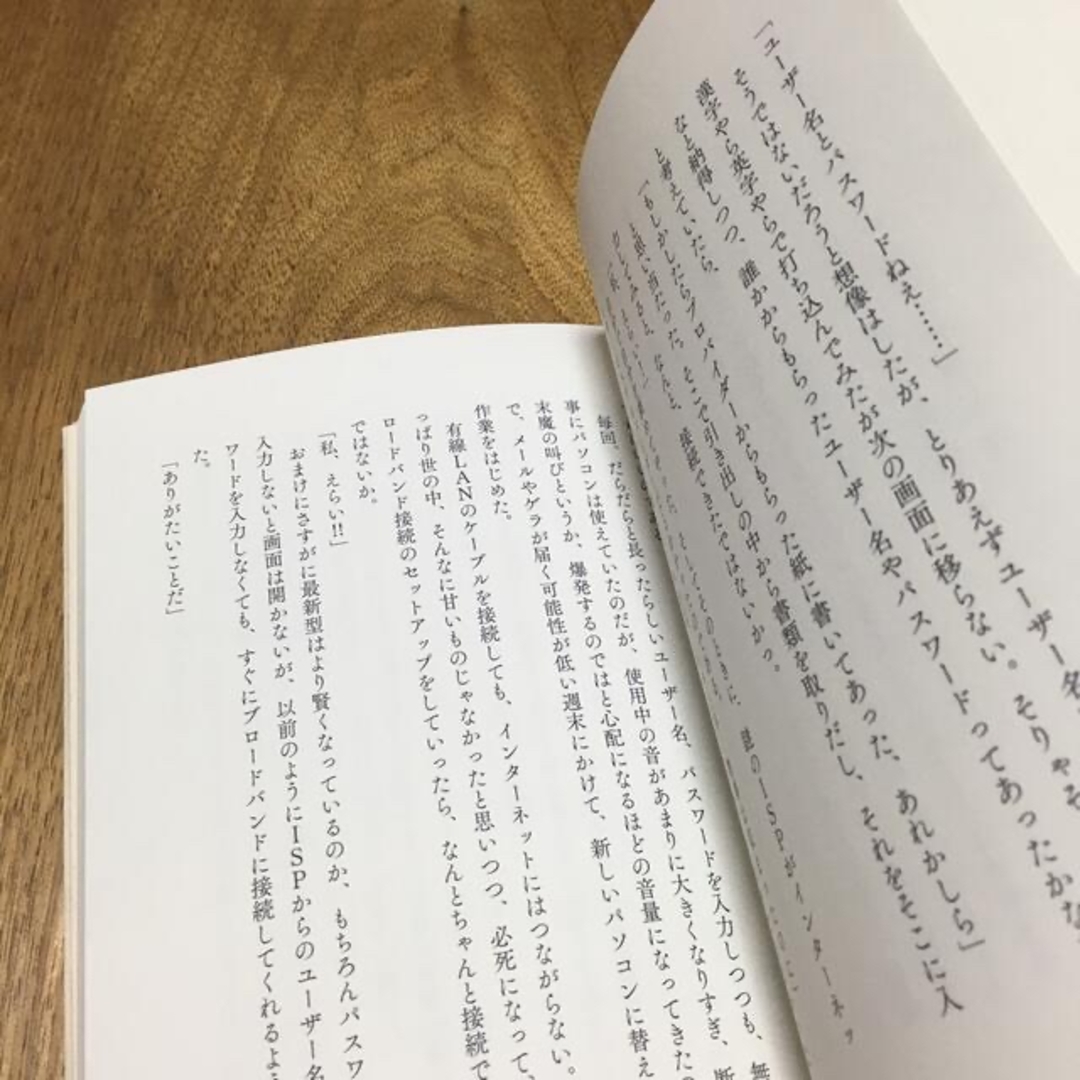 「ユーザー名とパスワードねえ……」
そうではないだろうと想像はしたが、とりあえずユーザー名
漢字やら英字やらで打ち込んでみたが次の画面に移らない。そりゃそ
なと納得しつつ、誰かからもらったユーザー名やパスワードってあったかな
と考えていたら、
「もしかしたらプロバイダーからもらった紙に書いてあった、あれかしら」
と思い当たった。そこで引き出しの中から書類を取りだし、それをそこに入
力してみると、なんと、接続できたではないかっ。
毎回、だらだらと長ったらしいユーザー名、パスワードを入力しつつも、無
事にパソコンは使えていたのだが、使用中の音があまりに大きくなりすぎ、断
末魔の叫びというか、爆発するのではと心配になるほどの音量になってきたの
で、メールやゲラが届く可能性が低い週末にかけて、新しいパソコンに替え
作業をはじめた。
有線LANのケーブルを接続しても、インターネットにはつながらない。
っぱり世の中、そんなに甘いものじゃなかったと思いつつ、必死になって、
ロードバンド接続のセットアップをしていったら、なんとちゃんと接続で
ではないか。
「私、えらい!!」
おまけにさすがに最新型はより賢くなっているのか、もちろんパスワ
入力しないと画面は開かないが、以前のようにISPからのユーザー名
ワードを入力しなくても、すぐにブロードバンドに接続してくれるよう
た。
「ありがたいことだ」